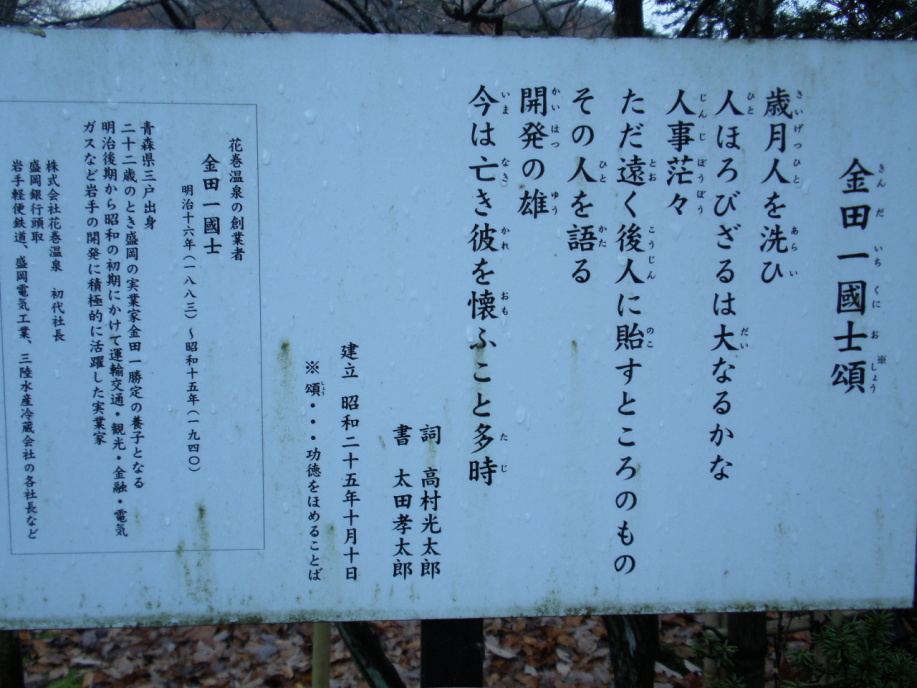 金田一國士頌※
歳月人を洗ひ
人ほろびざるは大なるかな
人事茫々
ただ遠く後人に貽すところのもの
その人を語る
開発の雄
今は亡き彼を懐ふこと多時
詞 高村光太郎
書 太田孝太郎
建立 昭和二十五年十月十日
※頌・・・功徳をほめることば
花巻温泉の創業者
金田一國士
明治十六年(一八八三)～昭和十五年(一九四〇)
青森県三戸出身
二十二歳のとき盛岡の実業家金田一勝定の養子となる
明治後期から昭和の初期にかけて運輸交通・観光・金融・電気
ガスなど岩手の開発に積極的に活躍した実業家
株式会社花巻温泉 初代社長
盛岡銀行頭取
岩手軽便鉄道、盛岡電気工業、三陸水産冷蔵会社の各社長など